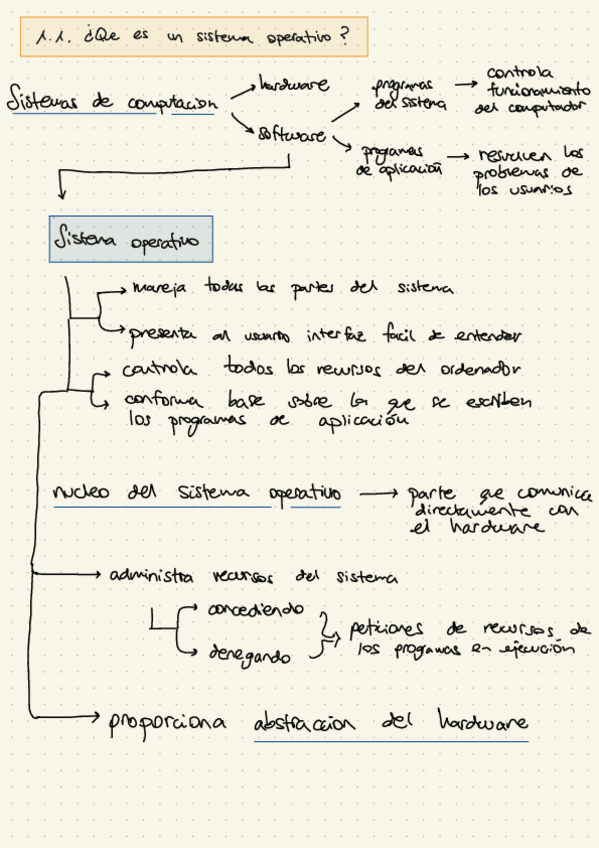 1.1. ¿Que es un sistema operativo?
Sistemas de computacion
hardware
software
programas
del sistema
controla
funcionamiento
del computador
programas
de aplicación
resuelven los
problemas de
los usuarios
Sistema operativo
maneja todas las partes del sistema
presenta al usuario interfaz facil de entender
controla todos los recursos del ordenador
conforma base sobre la que se escriben
los programas de aplicación
nucleo del sistema operativo
parte que comunica
directamente con
el hardware
administra recursos del sistema
concediendo
denegando
peticiones de recursos de
los programas en ejecución
proporciona abstraccion del hardware